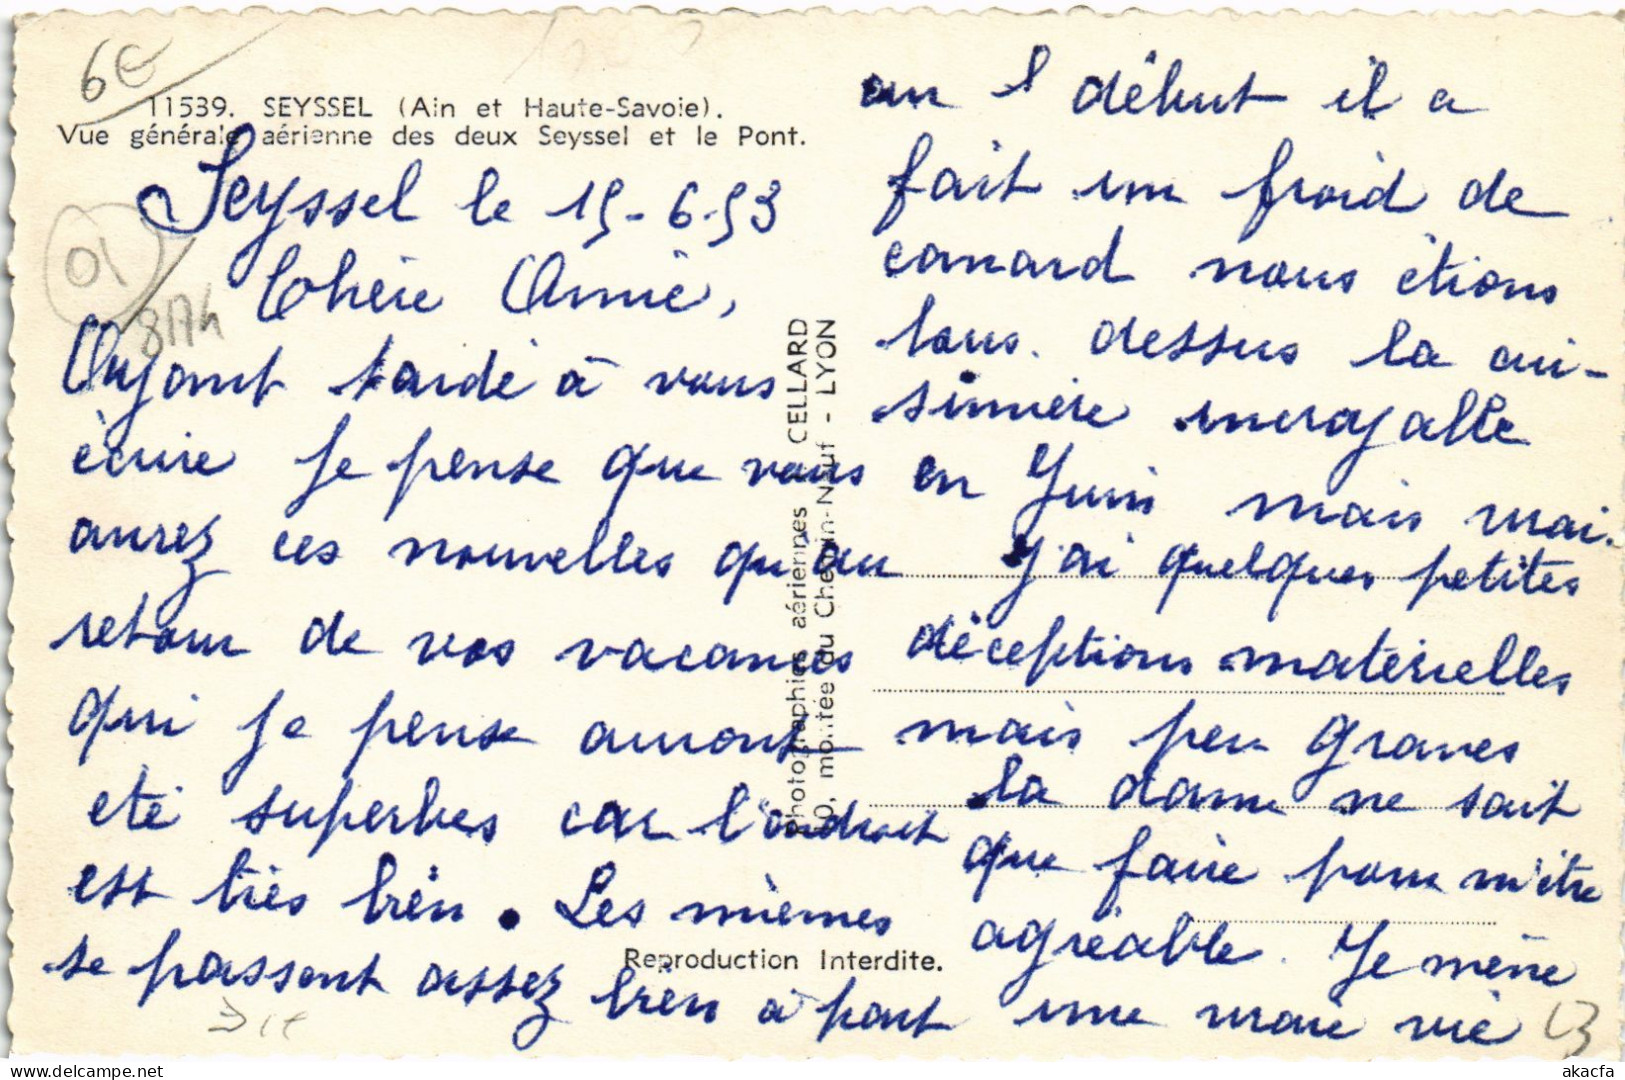 6€
11539. SEYSSEL (Ain et Haute-Savoie).
Vue générale aérienne des deux Seyssel et le Pont.
Seyssel le 15-6-53
Chère Amie,
Ayant tardé à vous
écrire je pense que vous
aurez ces nouvelles qu'au
retour de vos vacances
qui je pense auront
eté superbes car l'endroit
est très bien. Les mièmes
se passent assez bien à part
au début il a
fait un froid de
canard nous étions
tous dessus la cui-
sinière incroyable
en Juin mais vrai.
J'ai quelques petites
déceptions matérielles
mais peu graves
la dame ne sait
que faire pour m'être
agréable. Je mène
une vraie vie
Photographies aériennes CELLARD
10, montée du Chemin-Neuf - LYON
Reproduction Interdite.
01
akacfa